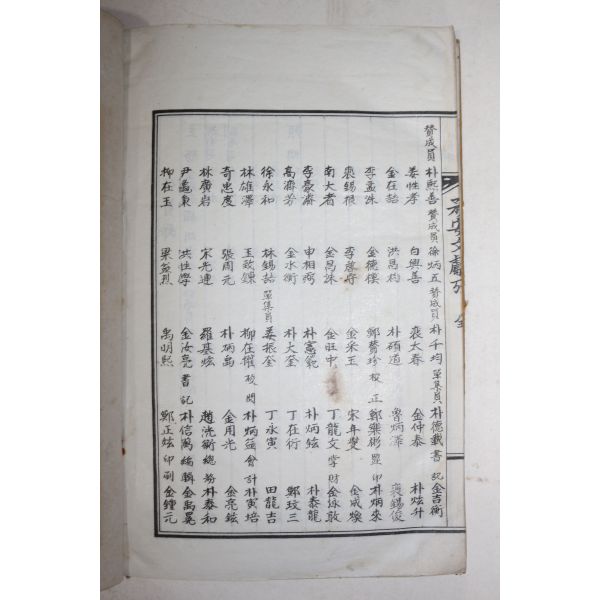 贊成員 朴熙善 贊成員 徐炳五 贊成員 朴千均 單集員 朴德載 書記 金吉衡
姜性孝 白興善 裵大春 金仲泰 朴炫升
金在喆 洪禹杓 朴碩道 魯炳澤 裵錫俊
李孟洙 金德樸 鄭贊珍 校正 鄭樂彬 印 朴炳來
裵錫根 金采玉 宋年燮 金成煥
南大者 金昌洙 金旺中 丁龍文 掌財 金泳敦
李豪 申相 朴憲範 朴炳鉉 朴泰龍
高濟芳 金水衡 朴大奎 丁在衍 鄭玟三
徐永和 林錫喆 單集員 姜振奎 丁永寅 田龍吉
林雄澤 玉致 柳在權 校閱 朴炳益 會計 朴寅培
奇忠度 張周元 朴炳禹 金用光 金亮鉉
林廣岩 宋光連 羅基炫 趙洸衡 總務 朴泰和
尹孟東 洪性學 金汝亮 書記 朴信萬 編輯 金禹晃
柳在玉 梁益烈 禹明熙 鄭正炫 印刷 金鍾元